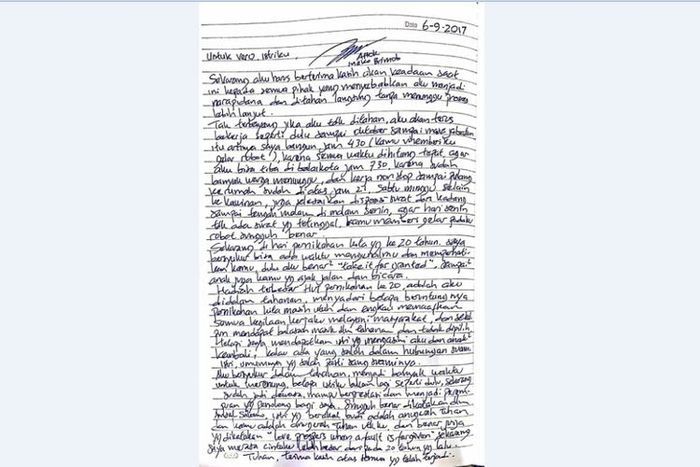 Date 6-9-2017
Untuk Vero, istriku
Ahok
Mako Brimob
Sekarang aku harus berterima kasih akan keadaan saat
ini kepada semua pihak yang menyebabkan aku menjadi
narapidana dan ditahan langsung tanpa menunggu proses
lebih lanjut.
Tak terbayang jika aku tdk ditahan, aku akan terus
bekerja seperti dulu sampai oktober sampai masa jabatan
itu artinya saya bangun jam 430 (kamu memberiku
gelar robot), karena semua waktu dihitung tepat agar
aku bisa tiba di balaikota jam 730, karena sudah
banyak warga menunggu, dan kerja non stop sampai pulang
ke rumah sudah di atas jam 21. Sabtu minggu selain
ke kawinan, juga selesaikan disposisi surat dan kadang
sampai tengah malam di malam senin, agar hari senin
tdk ada surat yg tertinggal, kamu memberi gelar
robot sungguh benar.
Sekarang di hari pernikahan kita yg ke 20 tahun, saya
bersyukur bisa ada waktu mengenalmu dan memperhati-
kan kamu, dulu aku benar² "take it for granted" sampai²
anak juga kamu yg ajak jalan dan bicara.
Hadiah terbesar HUT pernikahan ke 20, adalah aku
di dalam tahanan, menyadari betapa beruntungnya
pernikahan kita masih utuh dan engkau memaafkan
semua kegilaan kerjaku melayani masyarakat, dan
pun mendapat balasan masuk ke tahanan dan tidak dipilih.
Tetapi saya mendapatkan istri yg mengasihi aku dan anak²
kembali, kalau ada yang salah dalam hubungan suami
istri, umumnya yg salah pasti sang suaminya.
Aku bersyukur dalam tahanan, menjadi banyak waktu
untuk merenung, betapa istriku bukan lagi seperti dulu, sekarang
sudah jadi dewasa, mampu berprestasi dan menjadi
yg penolong bagi saya. Sungguh benar dikatakan
Salomo, istri yg berakal budi adalah anugerah Tuhan
dan kamu adalah anugerah Tuhan utk ku, dan benar juga
yg dikatakan "love prospers when a fault is forgiven" sekarang
saya merasa cintaku lebih besar daripada 20 tahun yg lalu.
Tuhan, terima kasih atas semua yg telah terjadi.